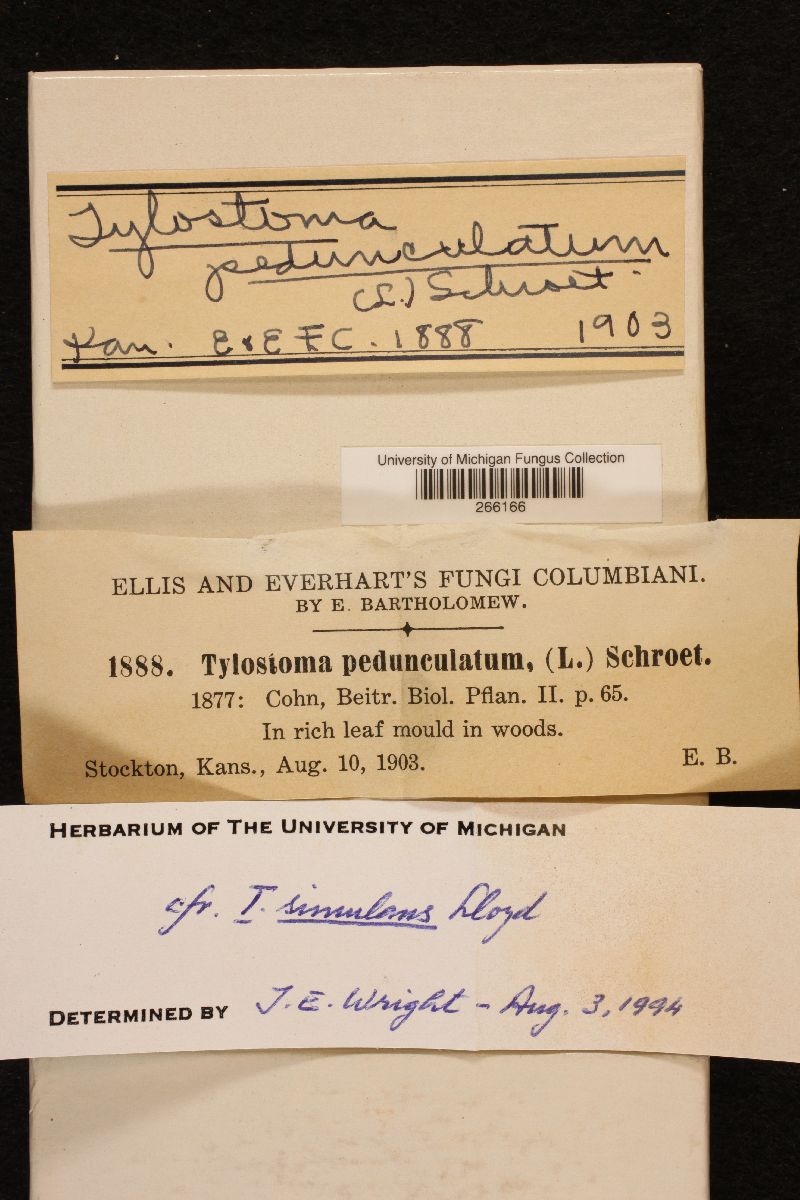 Tylostoma
pedunculatum
(L.) Schroet.
Kan. E & E F C. 1888 1903
University of Michigan Fungus Collection
266166
ELLIS AND EVERHART'S FUNGI COLUMBIANI.
BY E. BARTHOLOMEW.
1888. Tylostoma pedunculatum, (L.) Schroet.
1877: Cohn, Beitr. Biol. Pflan. II. p. 65.
In rich leaf mould in woods.
Stockton, Kans., Aug. 10, 1903. E. B.
HERBARIUM OF THE UNIVERSITY OF MICHIGAN
cfr. T. simulans Lloyd
DETERMINED BY J. E. Wright - Aug. 3, 1994